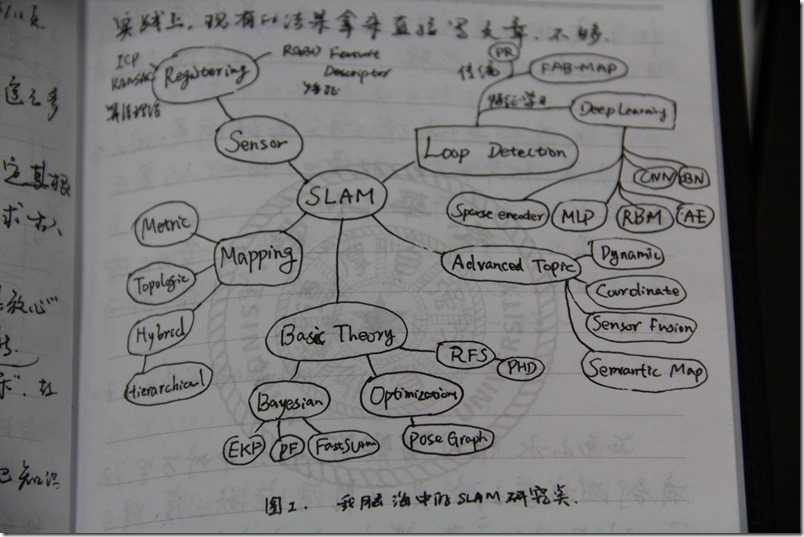 实践上,现有的结果拿来直接写文章,不够.
ICP
RANSAC
算法理论
Registering
RGBD Feature
Descriptor
特征
Sensor
SLAM
PR
传统
FAB-MAP
特征学习
Deep Learning
Loop Detection
CNN
BN
Sparse encoder
MLP
RBM
AE
Metric
Topologic
Hybrid
Hierarchical
Mapping
Advanced Topic
Dynamic
Coordinate
Sensor Fusion
Semantic Map
Basic Theory
RFS
PHD
Bayesian
Optimization
EKF
PF
FastSLAM
Pose Graph
图1. 我脑海中的SLAM研究类.
这么多
求
放心”
知识